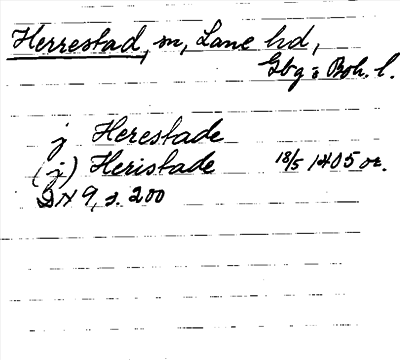 Herrestad, sn, Lane hd,
Gbg o Boh. l.
j Herestade
(j) Heristade 18/5 1405 or.
DN 9, s. 200